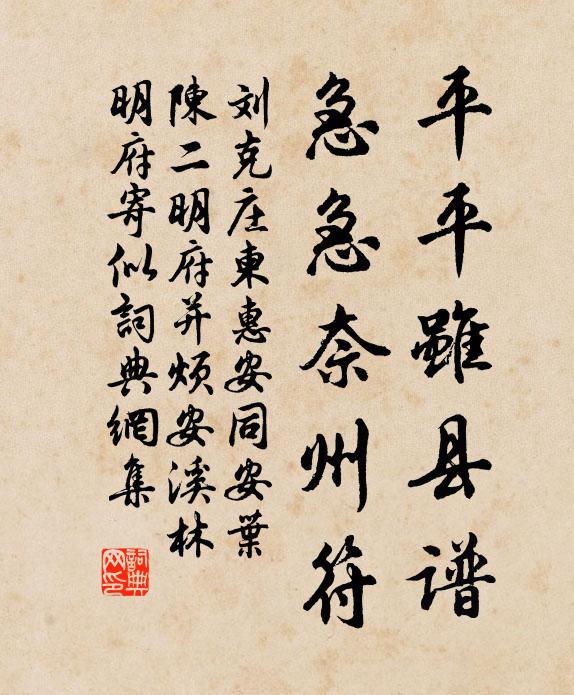 平平雖县谱
急急奈州符
刘克庄東惠安同安葉
陳二明府并烦安溪林
明府寄似詞典網集
詞典
网印